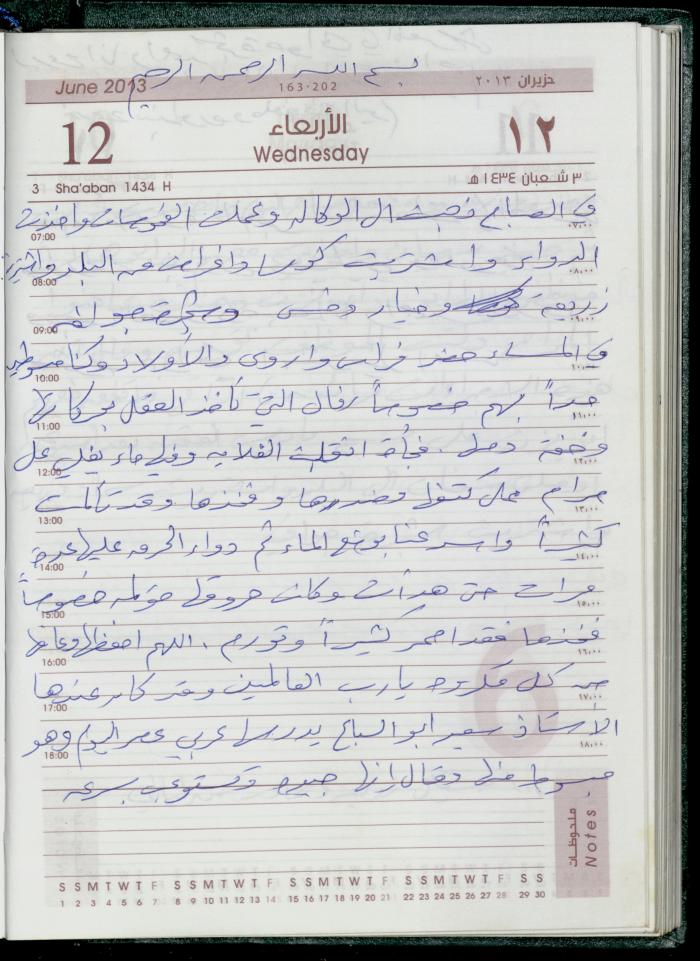 بسم الله الرحمن الرحيم
June 2013 163-202 حزيران ٢٠١٣
12 الأربعاء ١٢
Wednesday
3 Sha'aban 1434 H ٣ شعبان ١٤٣٤ هـ
في الصباح ذهبت الى الوكالة وعملت الفحوصات واخذت
07:00 ٠٧:٠٠
الدواء واشتريت كوسا واغراض من البلد واشتريت
08:00 ٠٨:٠٠
زريعة وخيار وخس
09:00 ٠٩:٠٠
في المساء حضر فراس واروى والأولاد وكنا مبسوطين
10:00 ١٠:٠٠
جداً بهم خصوصاً رفال التي تأخذ العقل بحركاتها
11:00 ١١:٠٠
وخفة دمها . فجأة انقلبت الغلاية وفيها ماء يغلي على
12:00 ١٢:٠٠
مرام على كتفها وصدرها وفخذها وقد تألمت
13:00 ١٣:٠٠
كثيراً واسرعنا بوضع الماء ثم دواء الحرق عليها عدة
14:00 ١٤:٠٠
مرات حتى هدأت وكانت حروقها مؤلمة خصوصاً
15:00 ١٥:٠٠
فخذها فقد احمر كثيراً وتورم . اللهم احفظها وعافها
16:00 ١٦:٠٠
من كل مكروه يا رب العالمين وقد كان عندها
17:00 ١٧:٠٠
الأستاذ سمير ابو السباع يدرسها عربي عصر اليوم وهو
18:00 ١٨:٠٠
مبسوط منها وقال إنها جيدة وتستوعب بسرعة
ملحوظات Notes
S S M T W T F S S M T W T F S S M T W T F S S M T W T F S S
1 2 3 4 5 6 7 8 9 10 11 12 13 14 15 16 17 18 19 20 21 22 23 24 25 26 27 28 29 30